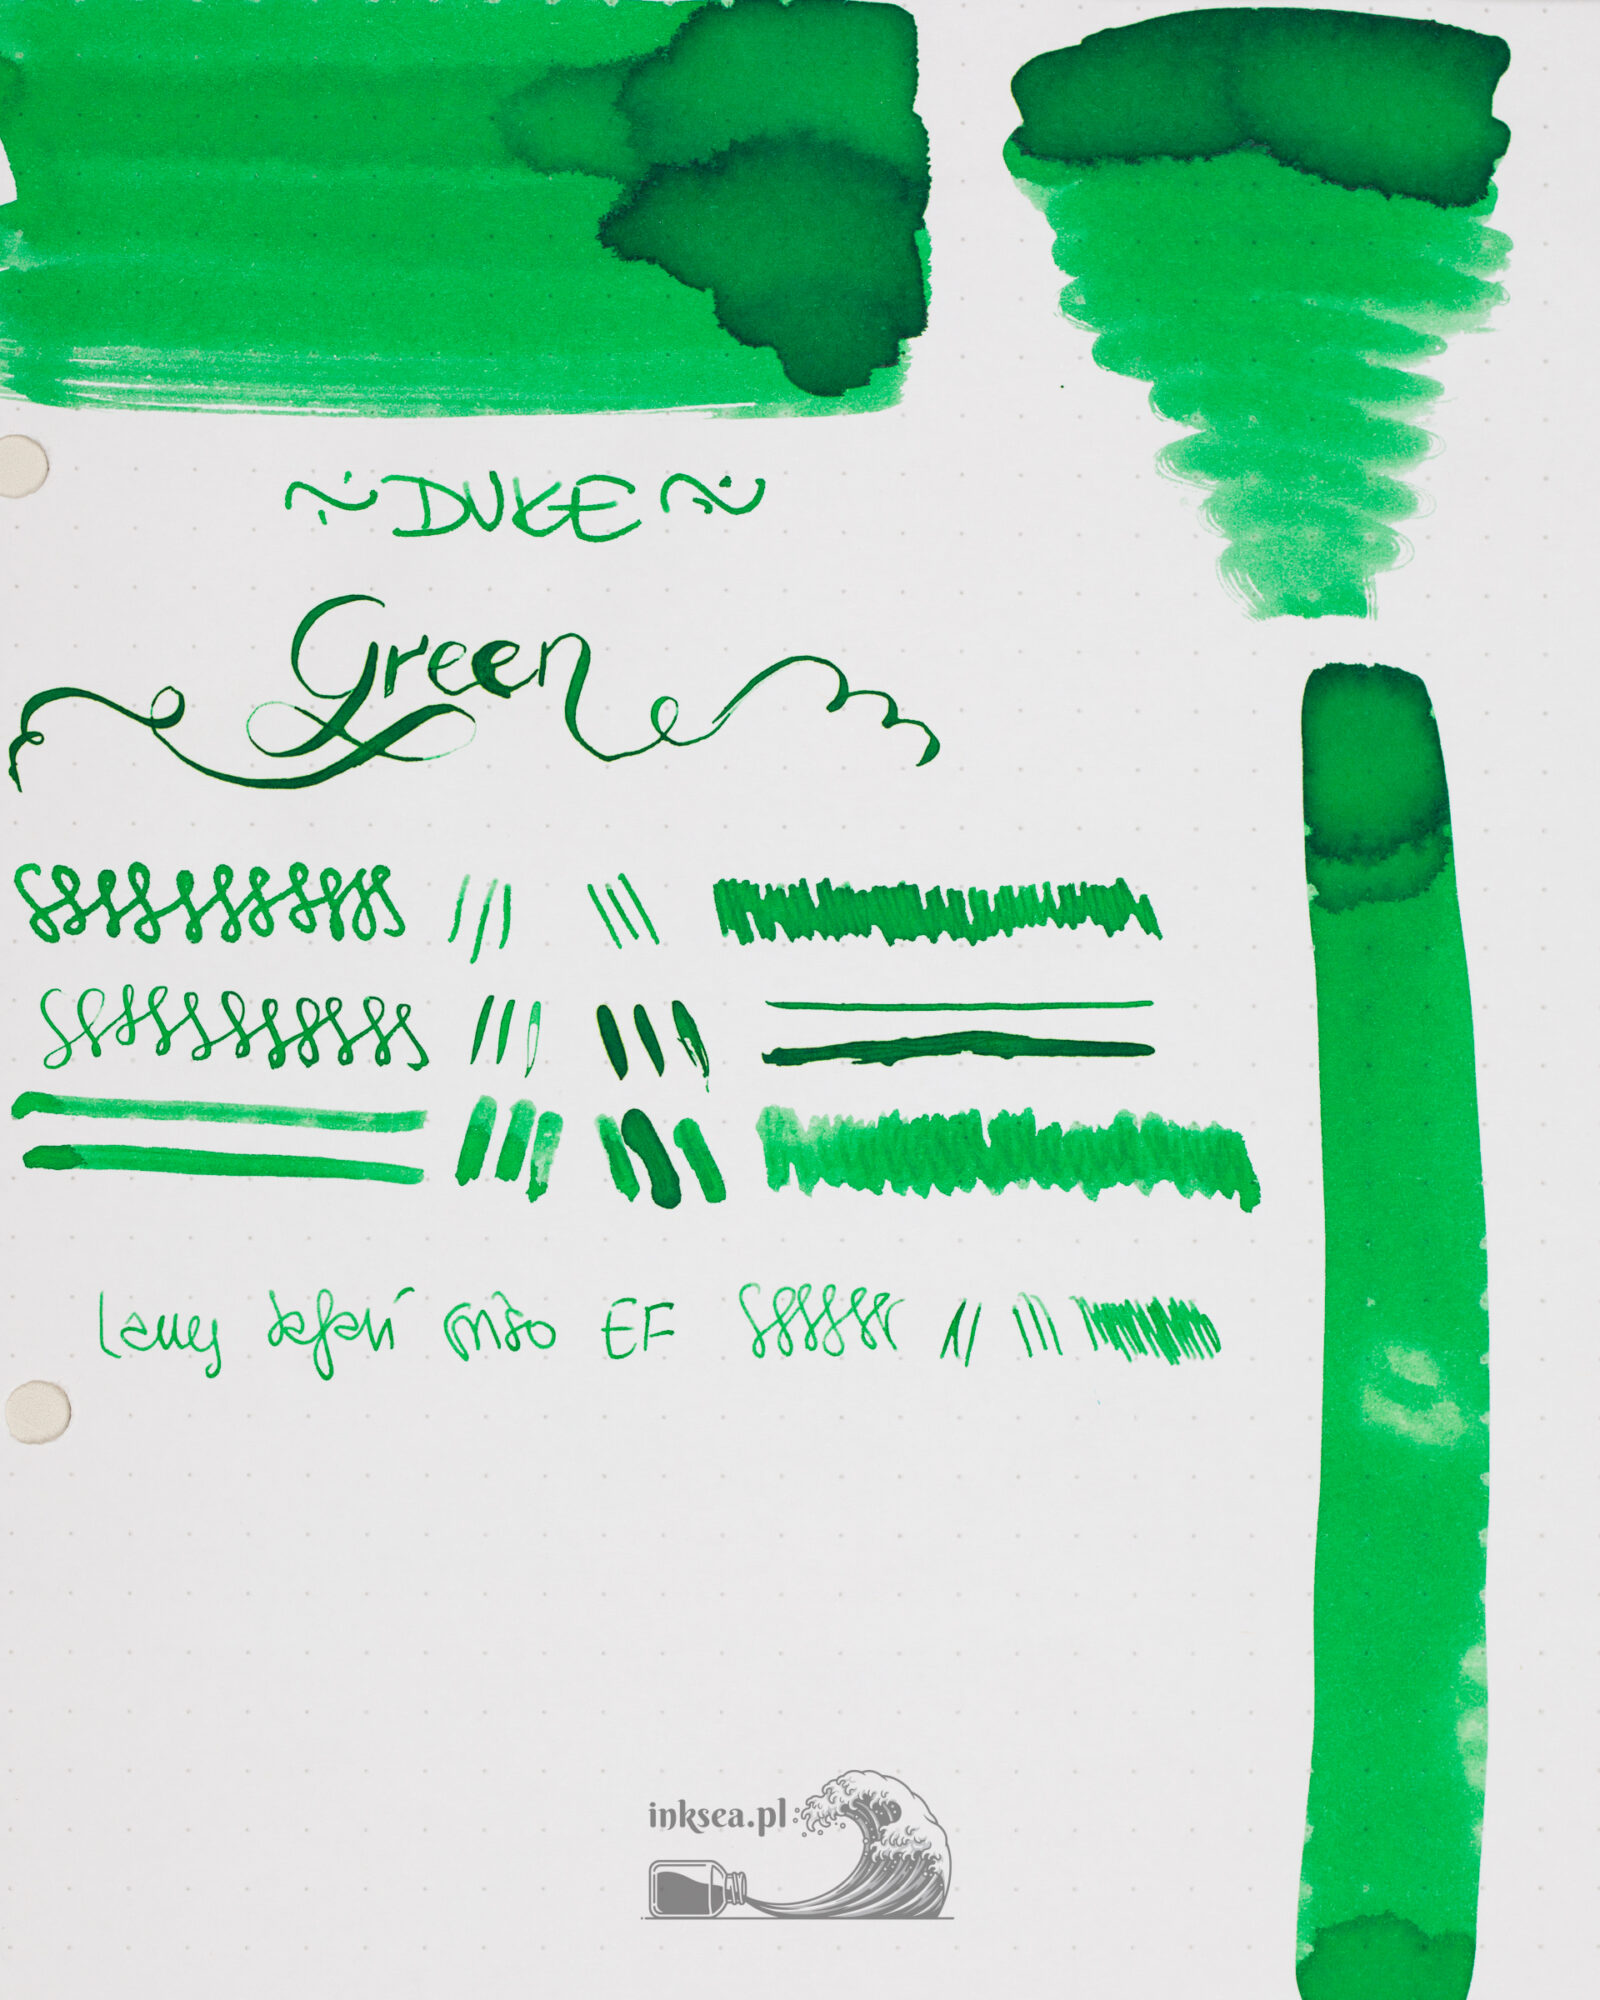 ~ DUKE ~
Green
Lamy Safari EF
inksea.pl